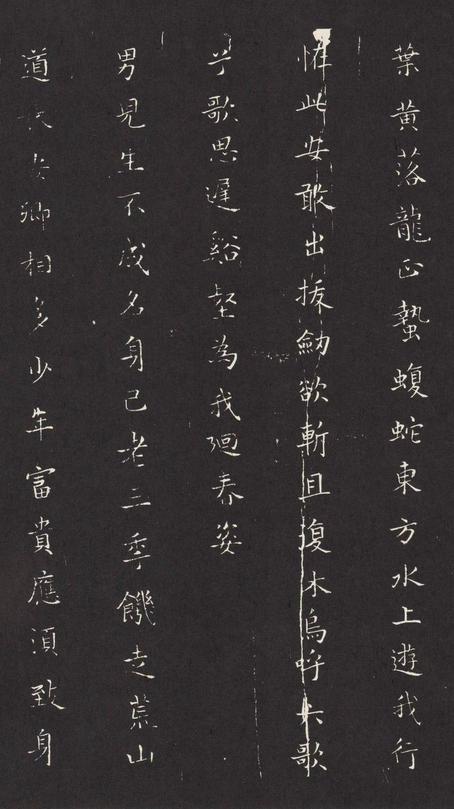 葉黃落龍正蟄蝮蛇東方水上遊我行
恠此安敢出拔劒欲斬且復木烏呼六歌
兮歌思遲谿壑為我迴春姿
男兒生不成名身已老三年饑走荒山
道長安卿相多少年富貴應須致身